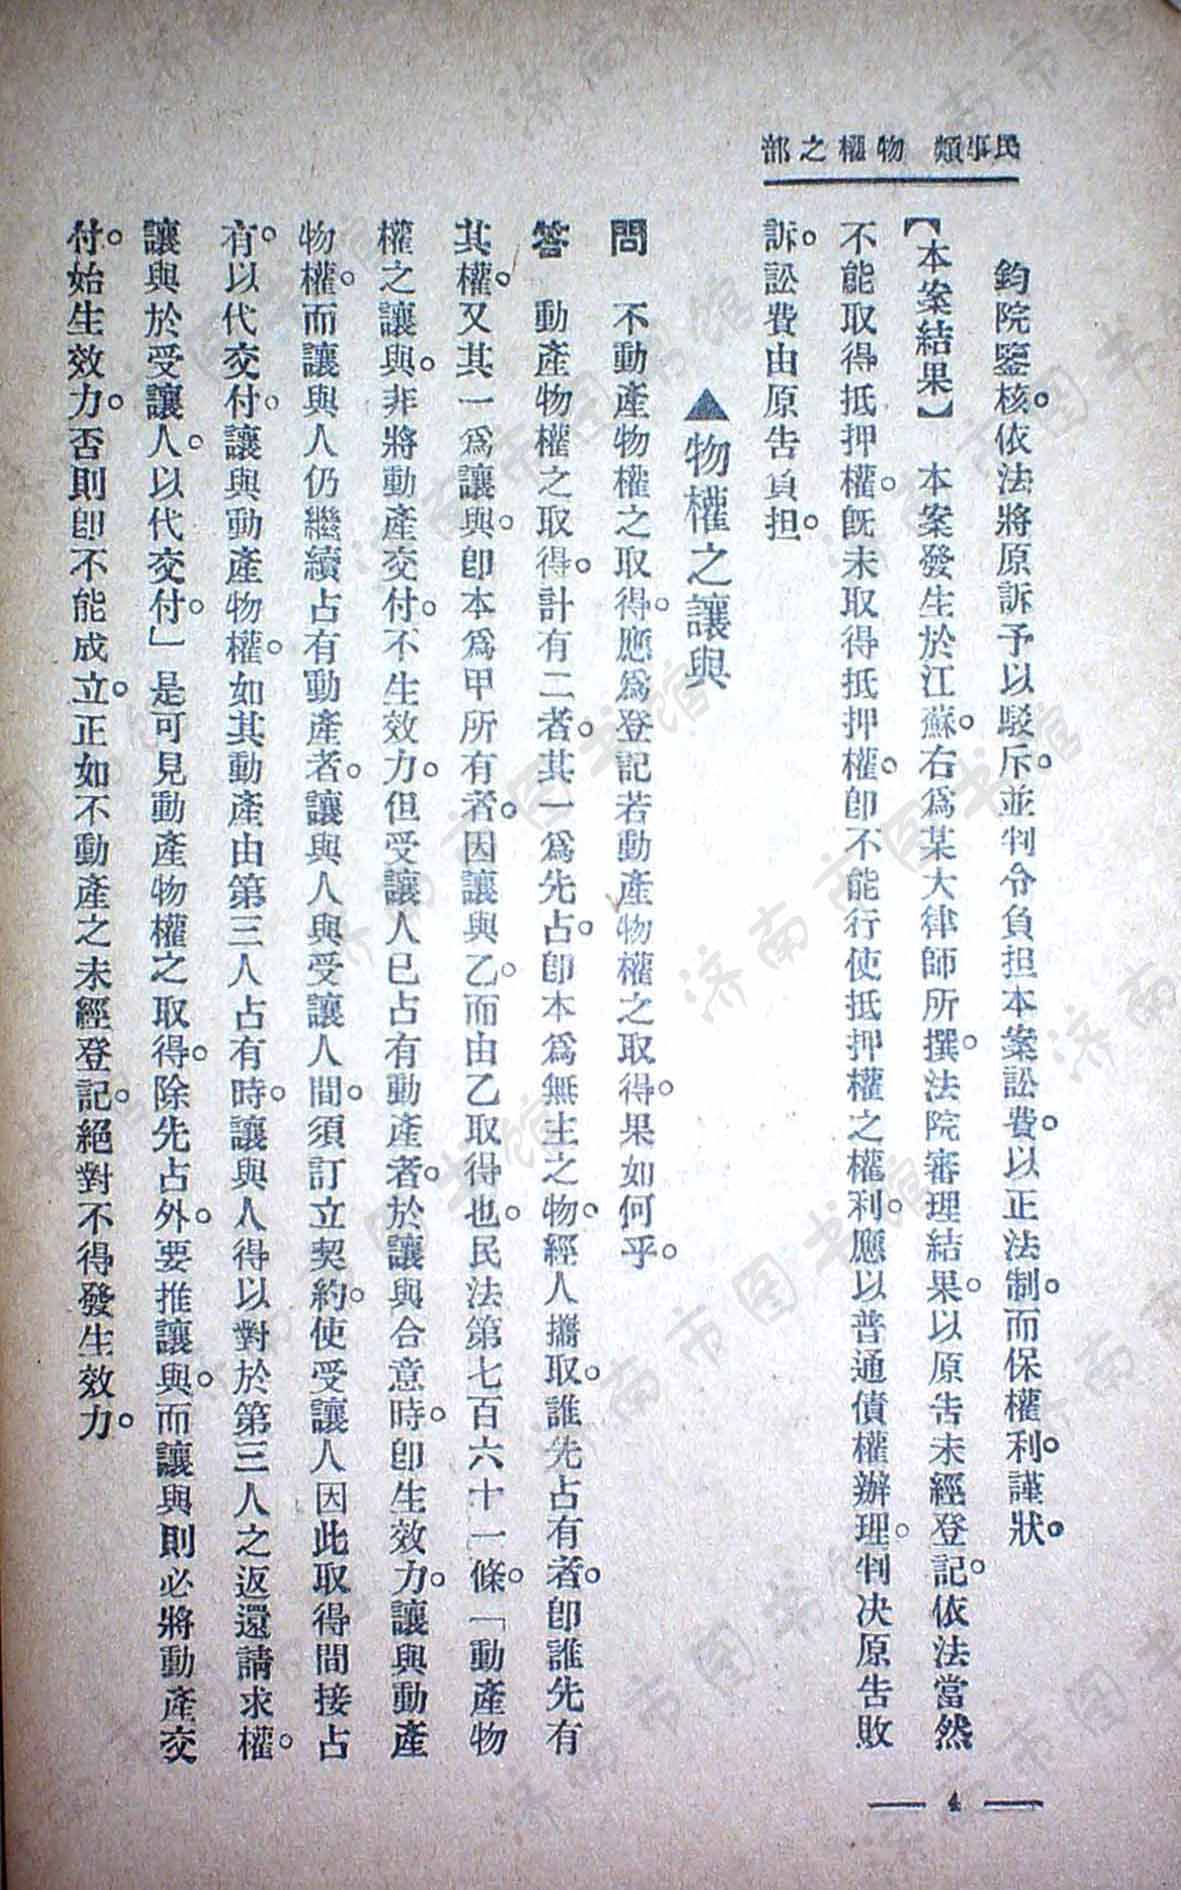 民事類　物權之部
鈞院鑒核。依法將原訴予以駁斥。並判令負担本案訟費。以正法制。而保權利。謹狀。
【本案結果】　本案發生於江蘇。右爲某大律師所撰。法院審理結果。以原告未經登記。依法當然
不能取得抵押權。旣未取得抵押權。卽不能行使抵押權之權利。應以普通債權辦理。判决原告敗
訴。訟費由原告負担。
▲物權之讓與
問　不動產物權之取得。應爲登記若動產物權之取得。果如何乎。
答　動產物權之取得。計有二者。其一爲先占。卽本爲無主之物。經人攜取。誰先占有者。卽誰先有
其權。又其一爲讓與。卽本爲甲所有者。因讓與乙。而由乙取得也。民法第七百六十一條。「動產物
權之讓與。非將動產交付。不生效力。但受讓人已占有動產者。於讓與合意時。卽生效力。讓與動產
物權。而讓與人仍繼續占有動產者。讓與人與受讓人間。須訂立契約。使受讓人因此取得間接占
有。以代交付。讓與動產物權。如其動產由第三人占有時。讓與人得以對於第三人之返還請求權。
讓與於受讓人。以代交付。」是可見動產物權之取得。除先占外。要推讓與。而讓與則必將動產交
付。始生效力。否則卽不能成立。正如不動產之未經登記。絕對不得發生效力。
— 4 —
济南市图书馆